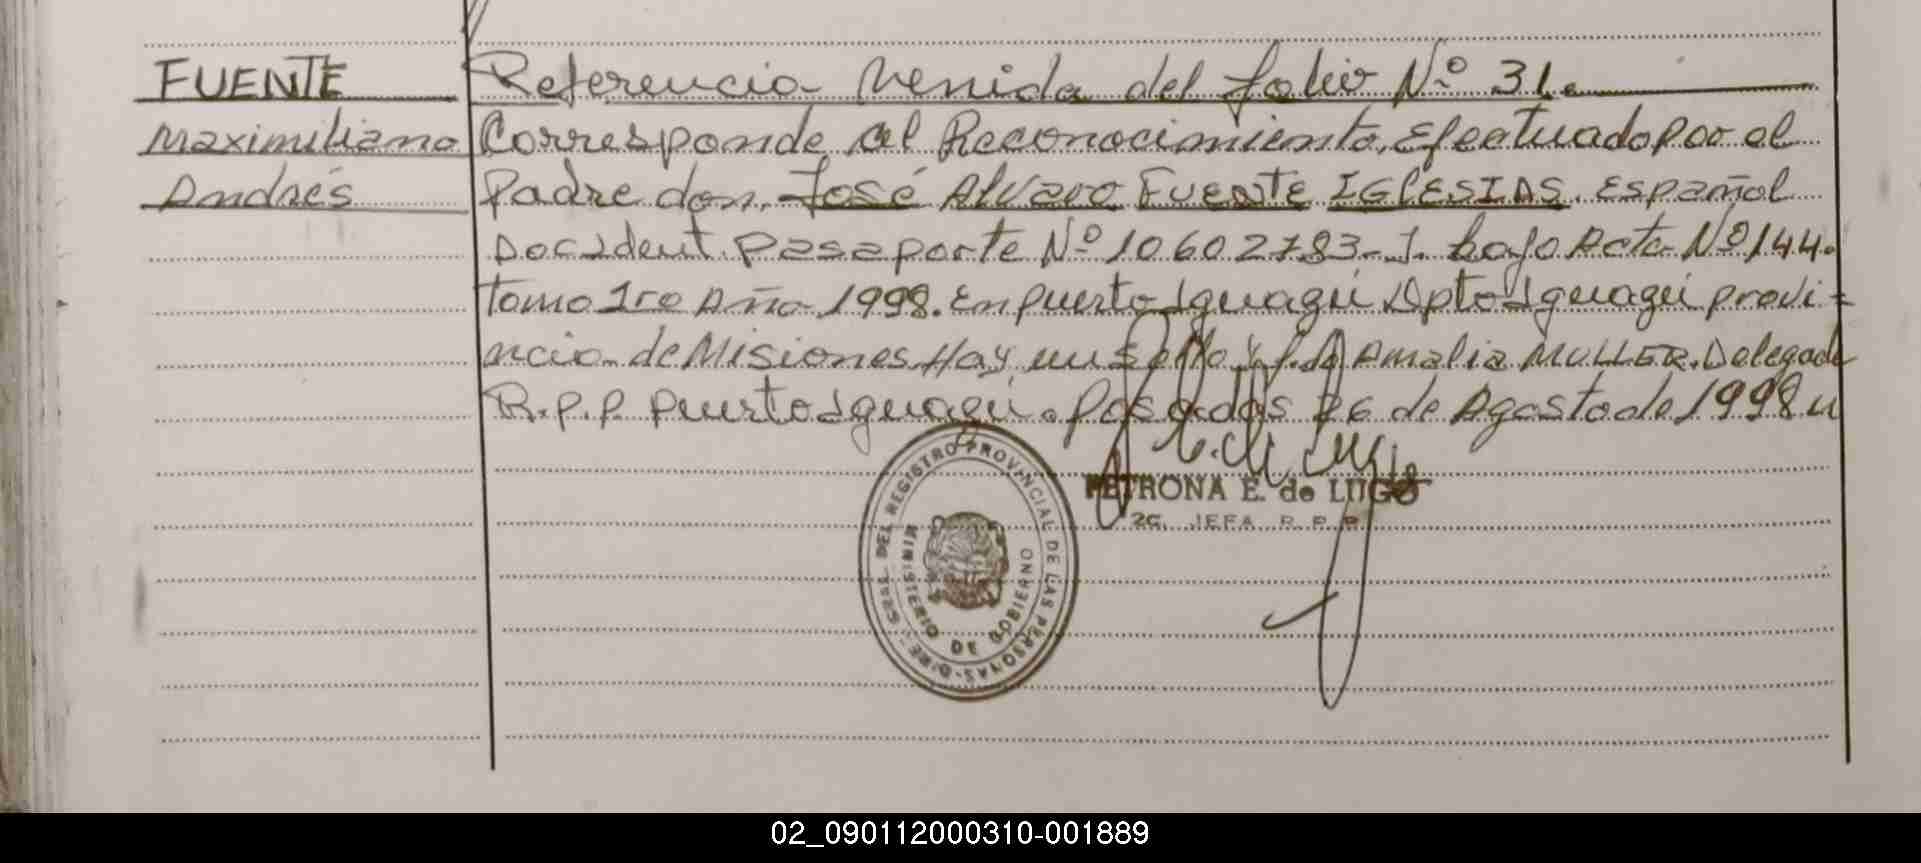 FUENTE
Maximiliano
Andrés
Referencia Venida del folio Nº 31.
Corresponde al Reconocimiento, Efectuado por el
Padre don, José Alvaro FUENTE IGLESIAS. Español
Doc. Ident. Pasaporte Nº 10602783-J. bajo Acta Nº 144.
Tomo 1ro Año 1998. En puerto Iguazú Dpto Iguazú provi-
ncia de Misiones. Hay un sello y f. de Amalia MULLER. Delegada
R.P.P. Puerto Iguazú. Posadas 26 de Agosto de 1998
PETRONA E. de LUGO
2a. JEFA R.P.P.
DEL REGISTRO PROVINCIAL DE LAS PERSONAS
MINISTERIO DE GOBIERNO
02_090112000310-001889